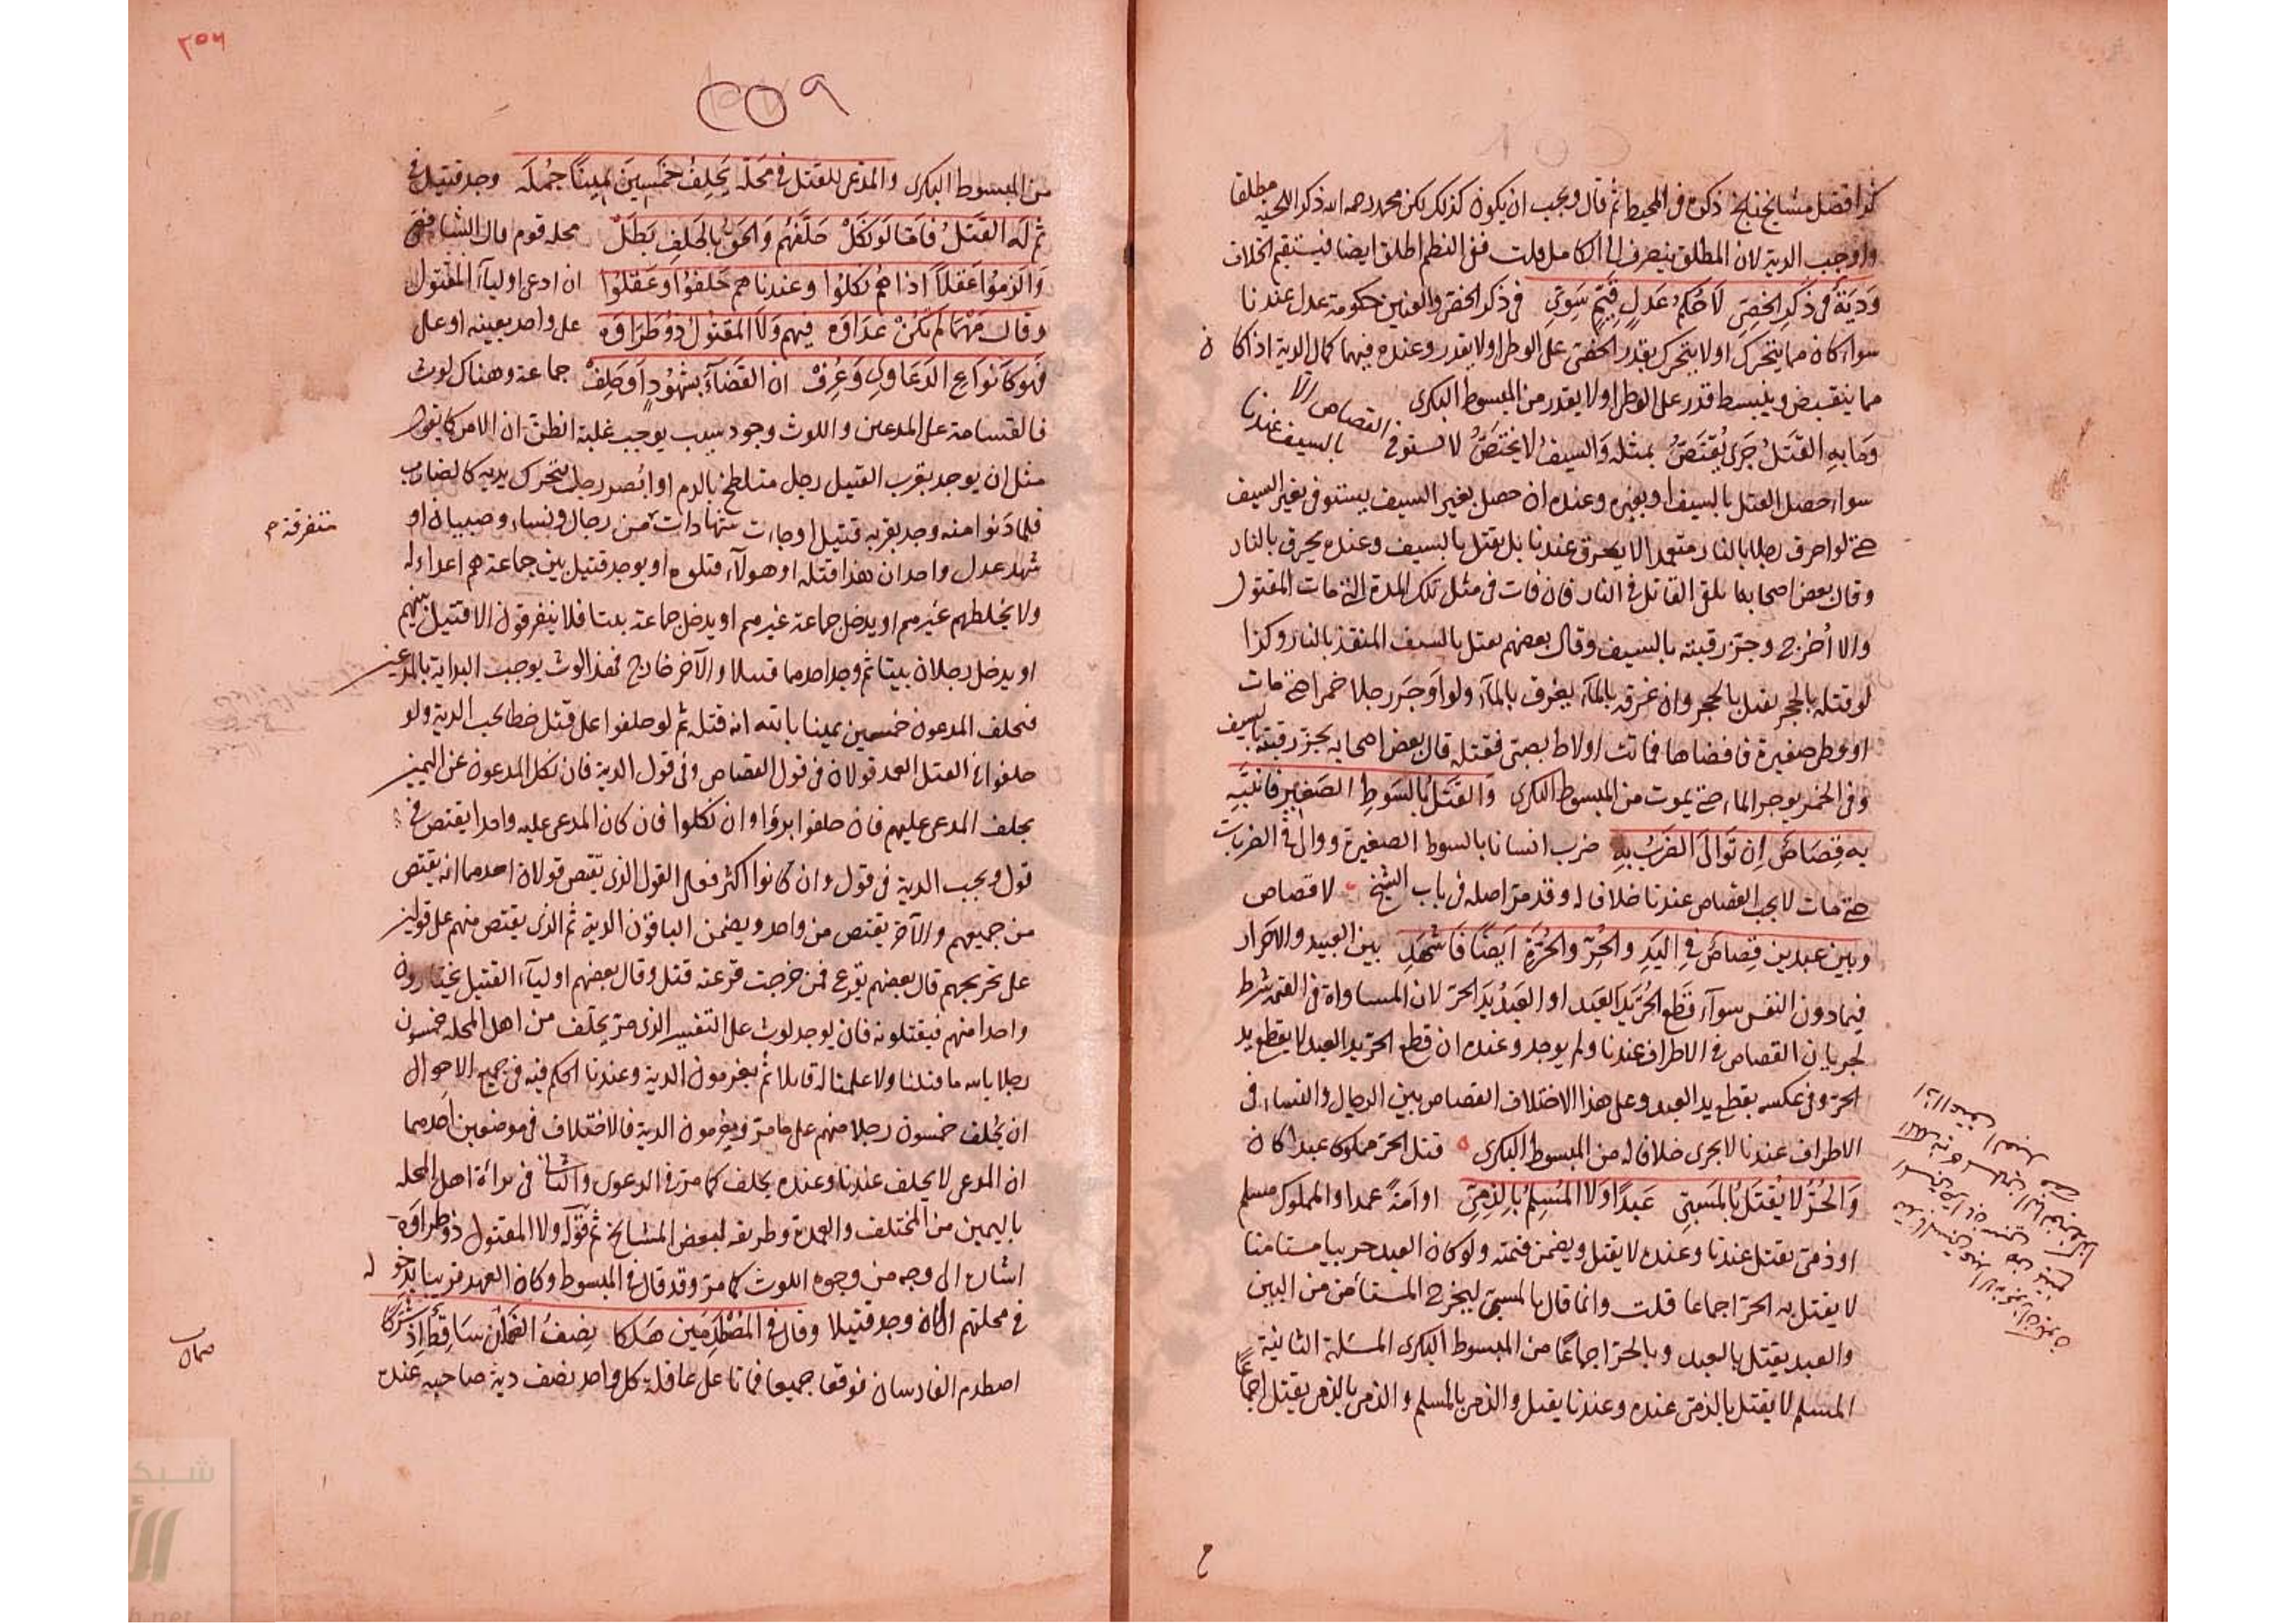 كذا فصل مشايخنا بلخ ذكره في المحيط ثم قال ويجب ان يكون كذلك لكن محمد رحمه الله ذكر اللحية مطلقا
واوجب الدية لان المطلق ينصرف الى الكامل قلت ففي النظم اطلق ايضا فيستقيم الخلاف
وَدِيَةٌ في ذَكَرِ الخَصِيّ لاَ حُكمُ عَدلٍ قَيّمٍ سَوِيّ في ذكر الخصي والعنين حكومة عدل عندنا
سواء كان مما يتحرك او لا يتحرك يقدر الخصي على الوطئ او لا يقدر وعنده فيهما كمال الدية اذا كان
مما ينقبض وينبسط قدر على الوطئ او لا يقدر من المبسوط البكري
وَمَا بِهِ القَتلُ جَرَى يُقتَصُّ بمثلِه وَالسيفُ لا يختَصُّ لا يستوفى القصاص الا بالسيف عندنا
سواء حصل القتل بالسيف او بغيره وعنده ان حصل بغير السيف يستوفى بغير السيف
حتى لو احرق رجلا بالنار متعمدا لا يحرق عندنا بل يقتل بالسيف وعنده يحرق بالنار
وقال بعض اصحابه يلقى القاتل في النار فان فات في مثل تلك المدة التي مات المقتول
والا اُخرج وجزّ رقبته بالسيف وقال بعضهم يقتل بالسيف المنقذ بالنار وكذا
لو قتله بالحجر يقتل بالحجر وان غرقه بالماء يغرق بالماء ولو اَوجَرَ رجلا خمرا حتى مات
او وطئ صغيرة فافضاها فماتت او لاط بصبي فقتله قال بعض اصحابه يجزّ رقبته بالسيف
وفي الخمر يوجر الماء حتى يموت من المبسوط البكري وَالقَتلُ بالسَوطِ الصَغيرِ فَانتَبِه
بِه قِصَاصٌ اِن تَوَالَى الضَربُ بِه ضرب انسانا بالسوط الصغيرة ووالى في الضربات
حتى مات لا يجب القصاص عندنا خلافا له وقد مرّ اصله في باب الشيخ لا قصاص
وبين عبدين قِصَاصٌ في اليَدِ والحُرّ والحُرَّةِ اَيضًا فَاشهَدِ بين العبيد والاحرار
فيما دون النفس سوآء قَطَع الحُرّ يَدَ العَبد او العَبدُ يَدَ الحرّ لان المساواة في القيمة شرط
لجريان القصاص في الاطراف عندنا ولم يوجد وعنده ان قطع الحرّ يد العبد لا يقطع يد
الحرّ وفي عكسه يقطع يد العبد وعلى هذا الاختلاف القصاص بين الرجال والنساء في
الاطراف عندنا لا يجرى خلافا له من المبسوط البكري قتل الحرّ مملوكا عبدا كان
وَالحُرُّ لا يُقتَلُ بالمَسبِيّ عَبدًا وَلا المُسلِمُ بالذِمِّيّ او اَمَةً عمدا والمملوك مسلم
او ذمّيّ يقتل عندنا وعنده لا يقتل ويضمن قيمته ولو كان العبد حربيا مستامنا
لا يقتل به الحرّ اجماعا قلت وانما قال بالمسبيّ ليخرج المستأمن من البين
والعبد يقتل بالعبد وبالحرّ اجماعًا من المبسوط البكري المسئلة الثانية
المسلم لا يقتل بالذمّي عنده وعندنا يقتل والذمي بالمسلم والذمي بالذمي يقتل اجماعًا
٢٥٦
٢٥٩
من المبسوط البكري والمدّعي للقتل في محَلّه يَحلِفُ خَمسِينَ يمِينًا جُملَه وجد قتيل في
ثم لَه القَتلُ فاِمّا لَو نَكَلْ حَلَّفَهُم وَالحَقُّ بالحَلفِ بَطَلْ محلة قوم قال الشافعي
وَالزَمُوا عَقلاً اذا هُم نكلُوا وعندنا هم حَلفُوا وعَقلُوا ان ادعى اولياء المقتول
وقال مَهمَا لم تكُنْ عَدَاوَه فيهم وَلاَ المقتُولُ ذُو طَرَاوَه على واحد بعينه او على
فهو كاَنواعِ الدَعَاوِى وَعُرِفْ ان القَضَآءَ بِشُهُودٍ اَو حَلِفْ جماعة وهناك لوث
فالقسامة على المدعين واللوث وجود سبب يوجب غلبة الظن ان الامر كما يقول
مثل ان يوجد بقرب القتيل رجل متلطخ بالدم او اُبصر رجل يتحرك يديه كالضارب
فلما دنوا منه وجد بقربه قتيل او جاءت شهادات من رجال ونساء وصبيان او
متفرقة م
شهد عدل واحد ان هذا قتله او هولآء قتلوه او يوجد قتيل بين جماعة هم اعداء له
ولا يخلطهم غيرهم او يدخل جماعة غيرهم او يدخل جماعة بيتا فلا يتفرقون الا قتيل بينهم
او يدخل رجلان بيتا ثم وجد احدهما قتيلا والآخر خارج فهذا لوث يوجب البداية بالمدعين
فيحلف المدعون خمسين يمينا بالله انه قتل ثم لو حلفوا على قتل خطا يجب الدية ولو
حلفوا على القتل العمد قولان في قول القصاص وفي قول الدية فان نكل المدعون عن اليمين
يحلف المدعى عليهم فان حلفوا برؤا وان نكلوا فان كان المدعى عليه واحدا يقتص في
قول ويجب الدية في قول وان كانوا اكثر فعلى القول الذي يقتص قولان احدهما انه يقتص
من جميعهم والآخر يقتص من واحد ويضمن الباقون الدية ثم الذي يقتص منهم على قولين
على تخريجهم قال بعضهم يقرع فمن خرجت قرعته قتل وقال بعضهم اوليآء القتيل يختارون
واحدا منهم فيقتلونه فان يوجد لوث على التفسير الذي مرّ يحلف من اهل المحله خمسون
رجلا بالله ما قتلنا ولا علمنا له قاتلا ثم يغرمون الدية وعندنا الحكم فيه في جميع الاحوال
ان يُحلف خمسون رجلا منهم على ما مرّ ويغرمون الدية فالاختلاف في موضعين احدهما
ان المدعى لا يحلف عندنا وعنده يحلف كما مرّ في الدعوى والثاني في براءة اهل المحله
باليمين من المختلف والعمدة وطريقة لبعض المشايخ ثم قوله ولا المقتول ذو طراوه
اشار الى وجه من وجوه اللوث كما مرّ وقد قال في المبسوط وكان العهد قريبا بدخوله
في محلتهم الى ان وجد قتيلا وقال في المُصْطَدِمَينِ هَلَكا نِصفُ الضَمَانِ سَاقِطٌ اِذ شَرَكا
اصطدم الفارسان فوقعا جميعا فماتا على عاقلة كل واحد نصف دية صاحبه عنده